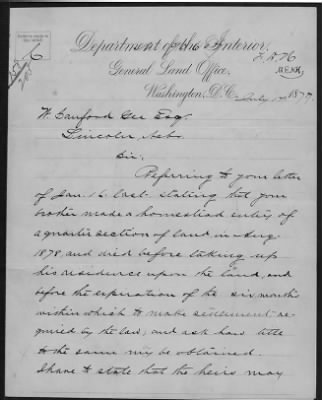 Department of the Interior,
General Land Office,
Washington, D.C., July 1879.
W. Sanford Gee Esq.
Lincoln, Neb.
Sir:
Referring to your letter
of Jan. 16. last. stating that your
brother made a homestead entry of
a quarter section of land in Aug.
1878, and died before taking up
his residence upon the land, and
before the expiration of the six months
within which to make settlement re-
quired by the law; and ask how title
to the same may be obtained.
I have to state that the heirs may